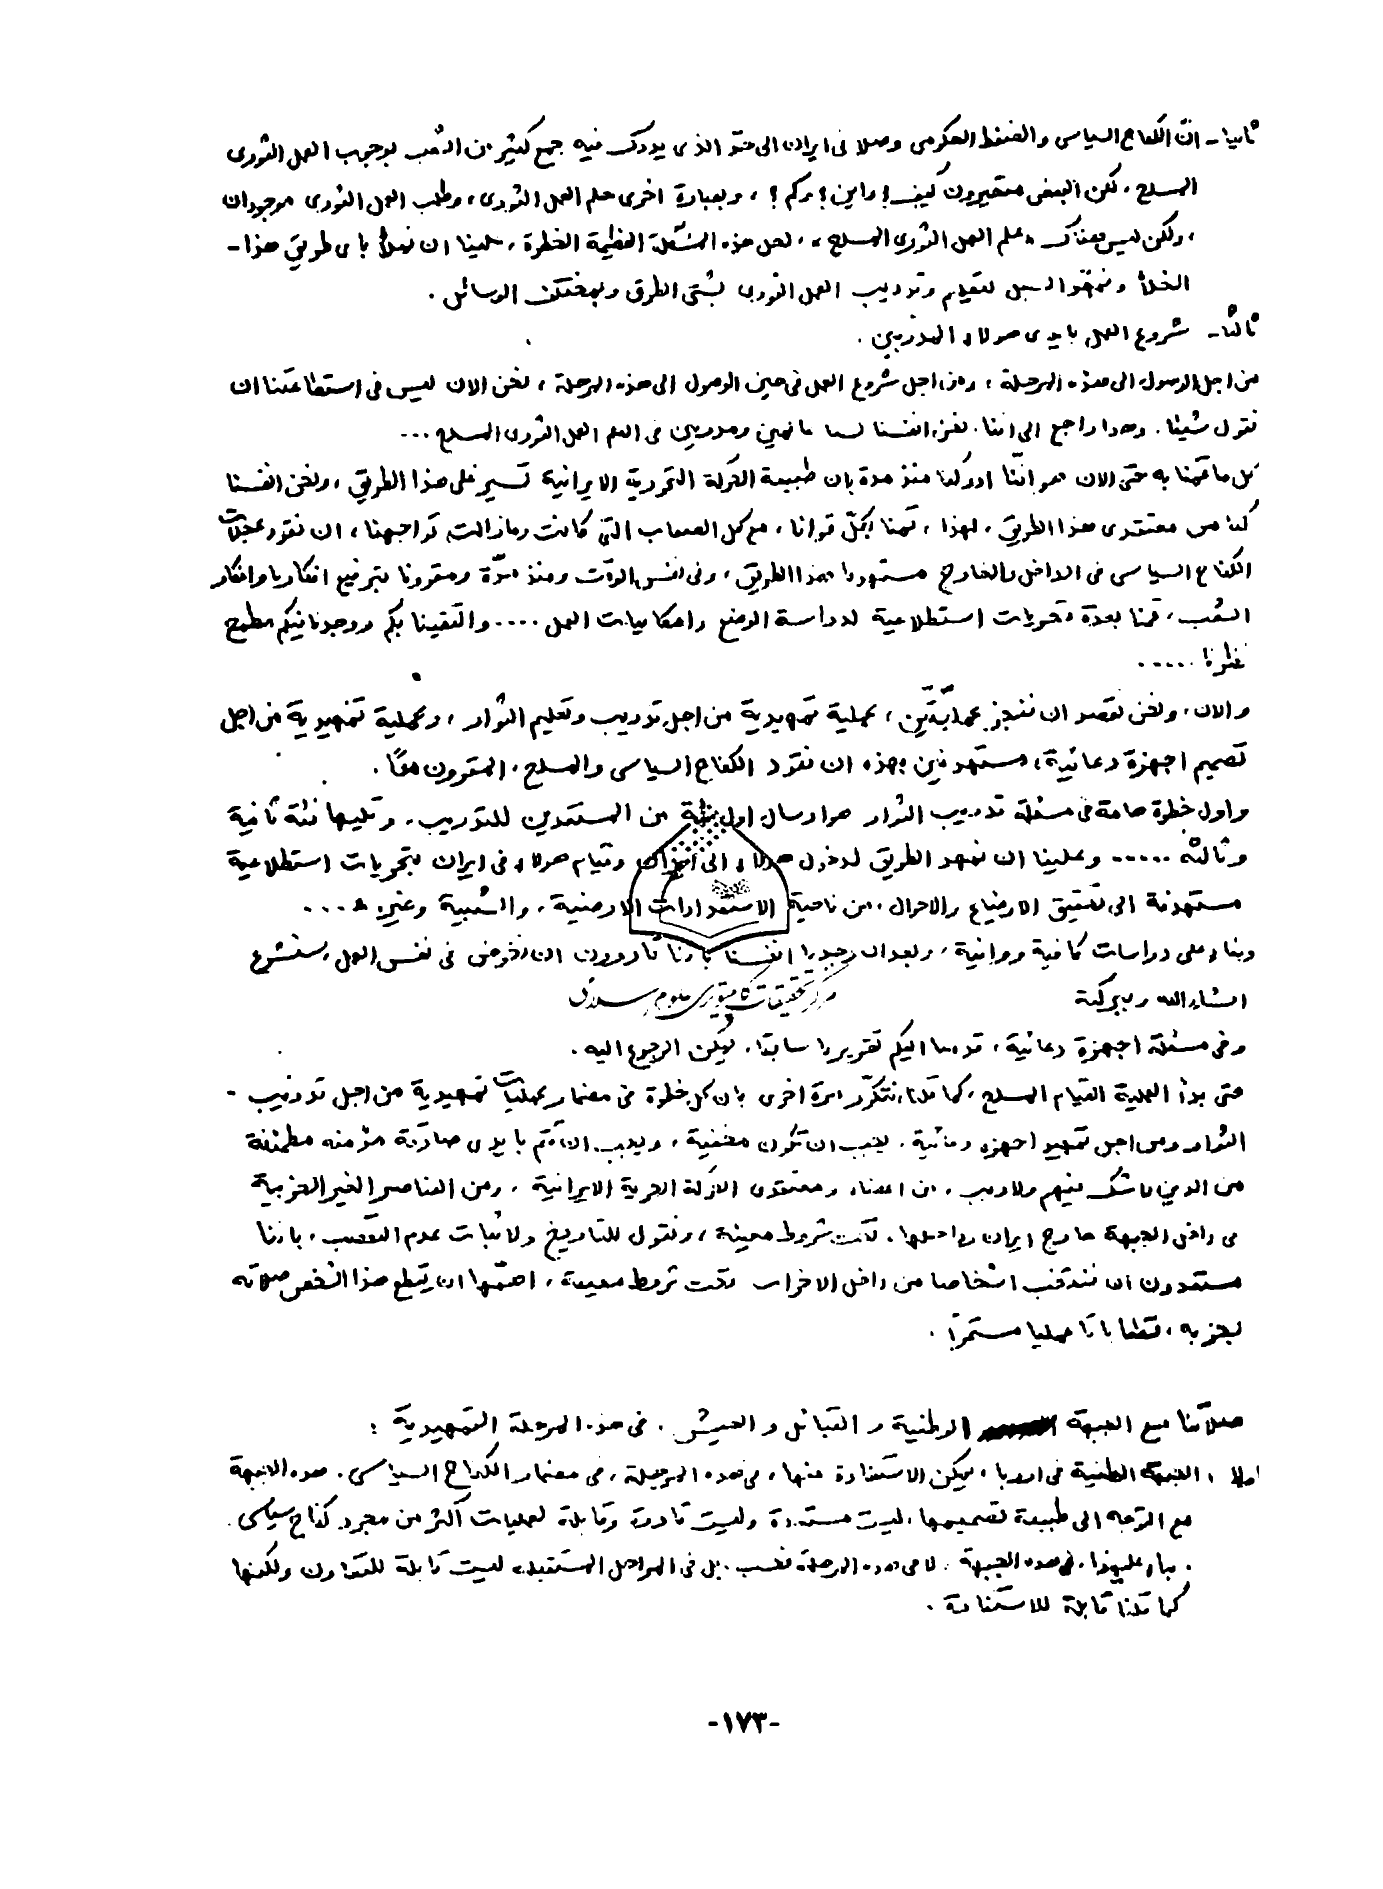 ثانيا - انّ الكفاح السياسى والضغط الحكومى وصلا فى ايران الى حدّ الذى يدرك فيه جمع كثير من الشعب لوجوب العمل الثورى
المسلح ، لكن البعض متحيرون كيف ؟ واين ؟ وكم ؟ ، وبعبارة اخرى حلم العمل الثورى ، وطلب العمل الثورى موجودان
، ولكن ليس هناك « علم العمل الثورى المسلح » ، لحل هذه المشكلة العظيمة الخطرة ، علينا ان نملأ باى طريق هذا -
الخلأ ونمهّد السبل لتعليم وتدريب العمل الثورى بشتى الطرق وبمختلف الوسائل .
ثالثا - شروع العمل بايدى هولاء المدرّبين .
من اجل الوصول الى هذه المرحلة ، ومن اجل شروع العمل فى حين الوصول الى هذه المرحلة ، نحن الان ليس فى استطاعتنا ان
نقول شيئا . وهذا راجع الى اننا نحن انفسنا لسنا عالمين ومدربين فى العلم العمل الثورى المسلح ...
كل ما قمنا به حتى الان هو اننّا ادركنا منذ مدة بان طبيعة الحركة التحررية الايرانية تسير على هذا الطريق ، ونحن انفسنا
كنا من معتقدى هذا الطريق . لهذا ، قمنا بكلّ قوانا ، مع كل الصعاب التى كانت ومازالت تواجهنا ، ان نقود عجلات
الكفاح السياسى فى الداخل والخارج مستهدفا هذا الطريق ، وفى نفس الوقت ومنذ مدّة ومقرونا بترفيع افكارنا وافكار
الشعب ، قمنا بعدة تحريات استطلاعية لدراسة الوضع وامكانيات العمل .... والتقينا بكم ووجدنا فيكم مطمح
نظرنا .....
والان ، ونحن نقصد ان ننجز عمليّتين ، عملية تمهيدية من اجل تدريب وتعليم الثوار ، وعملية تمهيدية من اجل
تصميم اجهزة دعائية ، مستهدفين بهذه ان نقود الكفاح السياسى والمسلح ، المقرون معًا .
واول خطوة هامة فى مسئلة تدريب الثوار هو ارسال اول فئة من المستعدين للتدريب . وتليها فئة ثانية
وثالثة ..... وعلينا ان نمهد الطريق لدخول هولاء الى ايران وقيام هولاء فى ايران بتحريات استطلاعية
مستهدفة الى تحقيق الاوضاع والاحوال ، من ناحية الاستعدادات الارضية ، والشعبية وغيره ....
وبناء على دراسات كافية ووافية ، وبعد ان وجدنا انفسنا باننا قادرون ان نخوض فى نفس العمل . سنشرع
انشاء الله وببركته
مركز تحقيقات كامپيوترى علوم اسلامى
وفى مسئلة اجهزة دعائية ، قدمنا اليكم تقريرنا سابقا . يمكن الرجوع اليه .
حتى بدأ العملية القيام المسلح ، كما قلنا ، نتكرّر مرة اخرى بان كل خطوة فى مضمار عمليات تمهيدية من اجل تدريب -
الثوار ومن اجل تمهيد اجهزه دعائية . يجب ان تكون مخفية ، ويجب ان تتم بايدى صادقة مؤمنه مطمئنة
من الذين لا شك فيهم ولا ريب . من اعضاء ومعتقدى الحركة الحرية الايرانية ، ومن العناصر الغير الحزبية
من داخل الجبهة خارج ايران وداخلها . تحت شروط معينة ، ونقول للتاريخ ولاثبات عدم التعصب ، باننا
مستعدون ان ننتخب اشخاصا من داخل الاحزاب تحت شروط معينة ، اهمّها ان يقطع هذا الشخص صلاته
بحزبه ، قطعا باتا عمليا مستمرّا .
صلاتنا مع الجبهة الوطنية والقبائل والجيش . فى هذه المرحلة التمهيدية :
اولا ، الجبهة الطنية فى اروبا ، يمكن الاستفادة منها ، فى هذه المرحلة ، فى مضمار الكفاح السياسى . هذه الجبهة
مع التوجه الى طبيعة تصميمها ، ليست مستعدة وليست قادرة وقابلة لعمليات اكثر من مجرد كفاح سياسى .
. بناء عليهذا ، فهذه الجبهة ، لا فى هذه المرحلة فحسب . بل فى المراحل المستقبله ليست قابلة للتعاون ولكنها
كما قلنا قابلة للاستفادة .
-١٧٣-